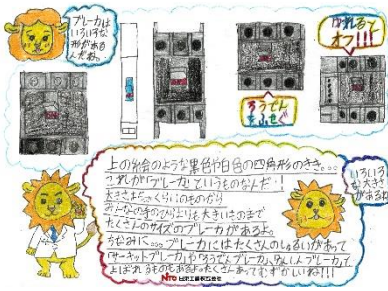 ブレーカは
いろいろな
形がある
んだね。
ふれると
オフ!!!
ろうでん
をふせぐ
上の絵のような黒色や白色の四角形のきき。。。
これが「ブレーカ」というものなんだ!!
大きさは
みんなの手のひらよりも大きいものまで
たくさんのサイズのブレーカがあるよ。
ちなみに。。。ブレーカにはたくさんのしゅるいがあって
「サーキットブレーカ」や「ろうでんブレーカ」
よばれるものもあるよ。たくさんあってむずかしいね!!!
いろいろ
な大きさ
があるね
NiTO 日東工業株式会社